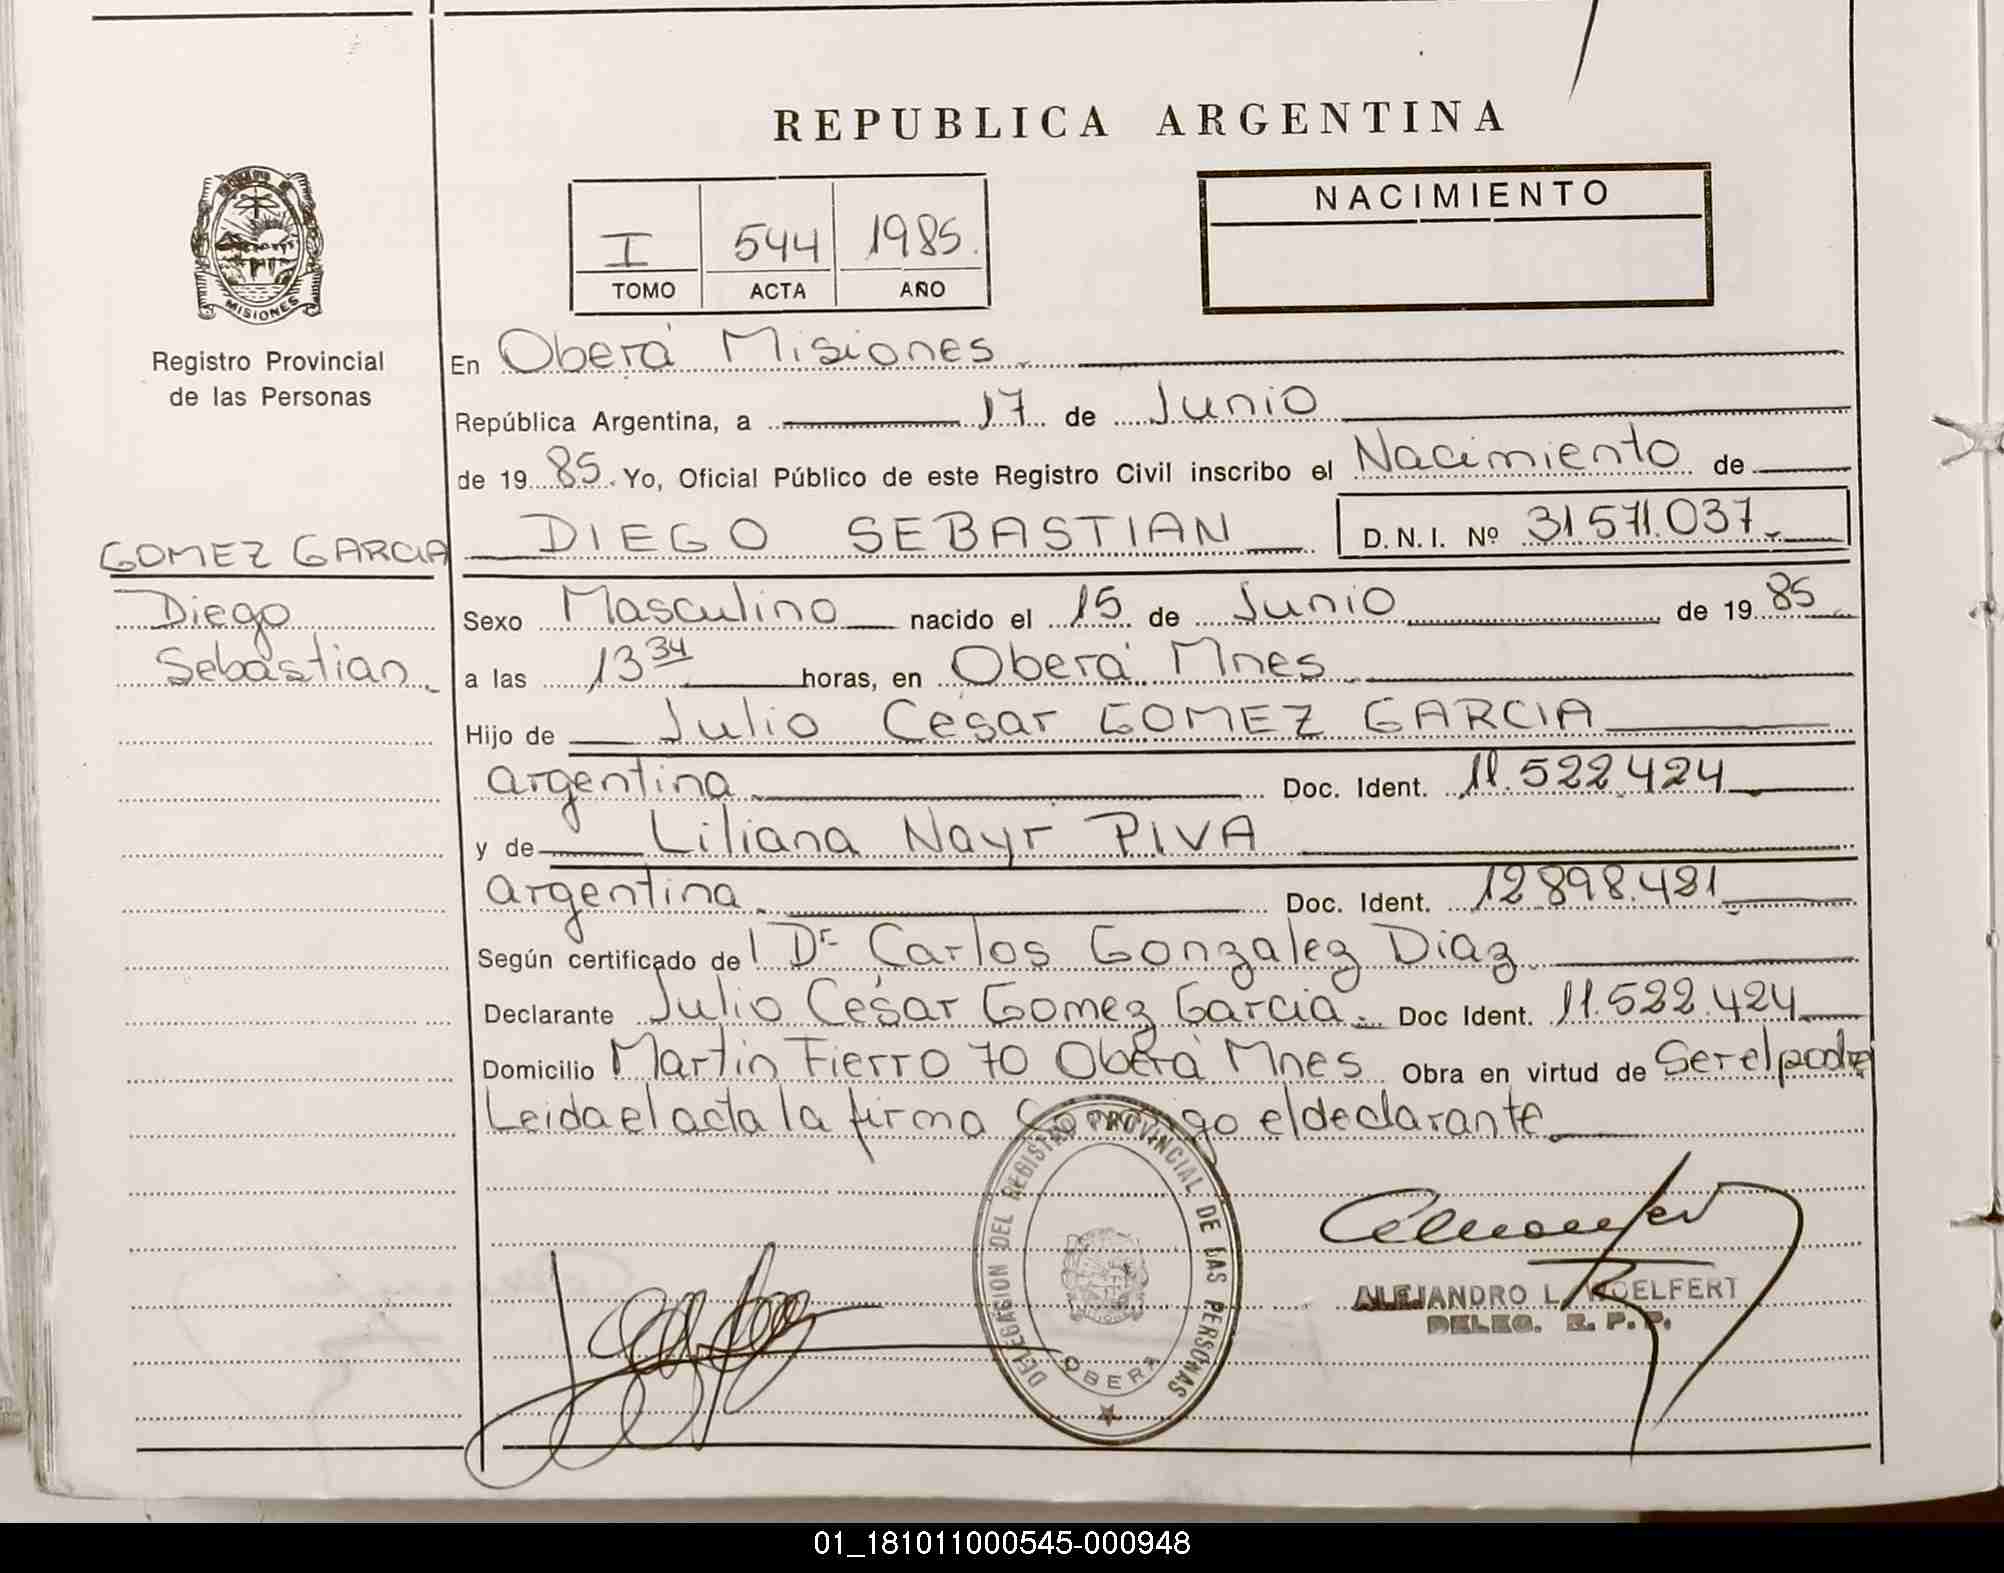 REPUBLICA ARGENTINA
NACIMIENTO
I 544 1985.
TOMO ACTA AÑO
MISIONES
Registro Provincial
de las Personas
En Oberá Misiones
República Argentina, a 17 de Junio
de 19 85. Yo, Oficial Público de este Registro Civil inscribo el Nacimiento de
GOMEZ GARCIA
Diego
Sebastian
DIEGO SEBASTIAN D.N.I. Nº 31571.037
Sexo Masculino nacido el 15 de Junio de 19 85
a las 13 34 horas, en Oberá Mnes
Hijo de Julio César GOMEZ GARCIA
argentina Doc. Ident. 11.522.424
y de Liliana Nayr PIVA
argentina Doc. Ident. 12.898.481
Según certificado de l Dr Carlos Gonzalez Diaz
Declarante Julio César Gomez Garcia. Doc Ident. 11.522.424
Domicilio Martin Fierro 70 Oberá Mnes Obra en virtud de Ser el padre
Leida el acta la firma eldeclarante
DELEGACION DEL REGISTRO PROVINCIAL DE LAS PERSONAS
OBERA
ALEJANDRO L.
DELEG. R. P. P.
01_181011000545-000948